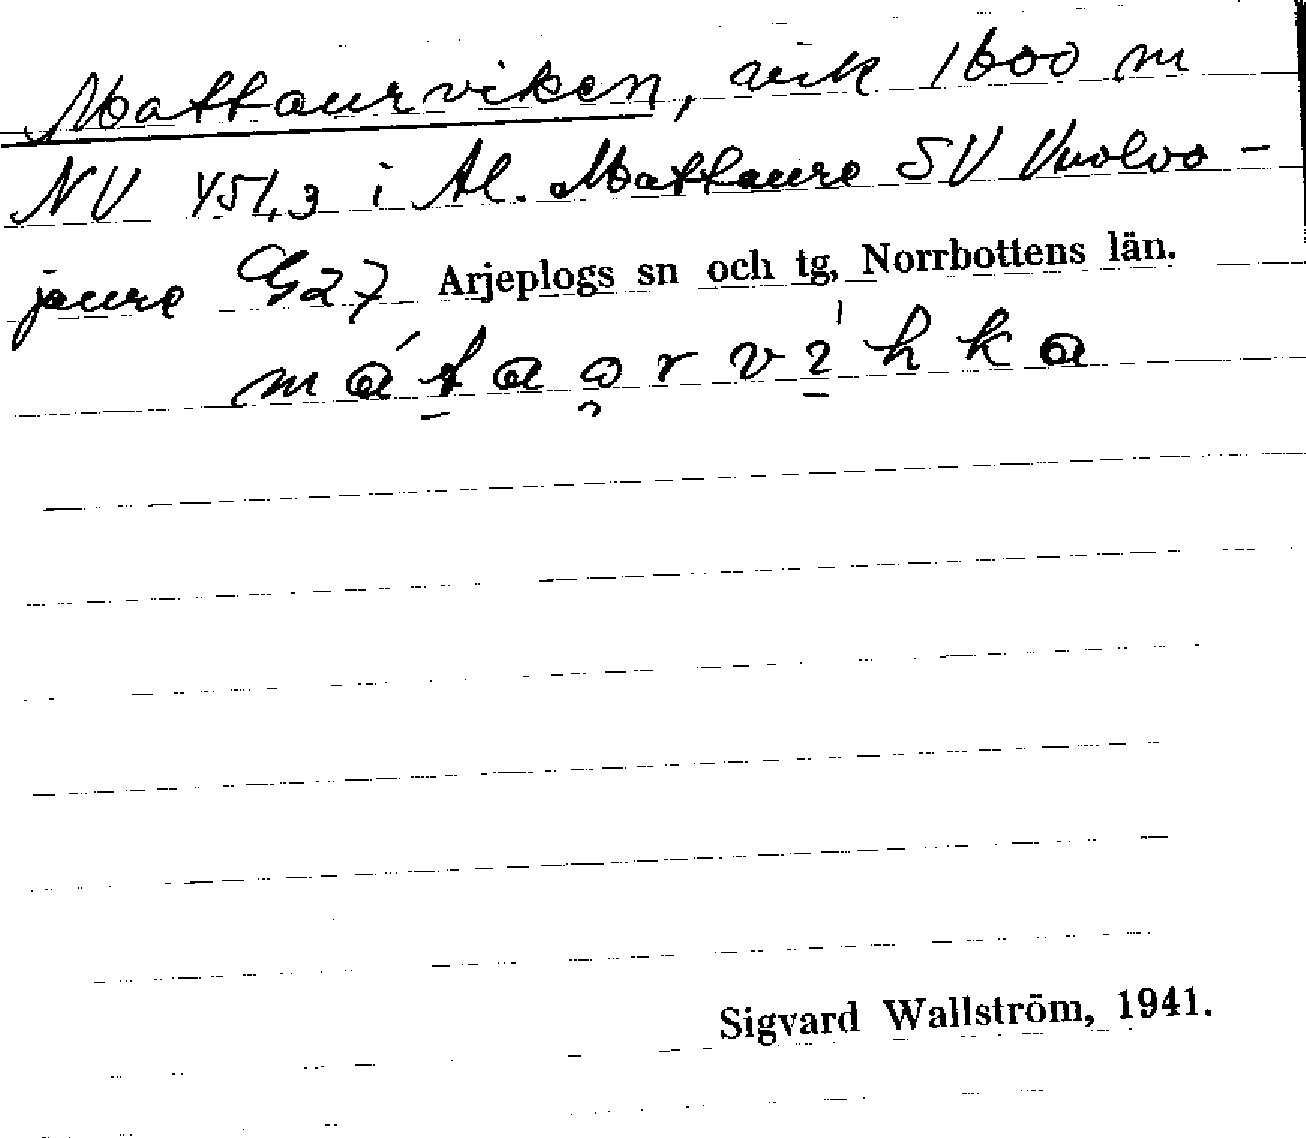 Mattaurviken, vik 1600 m
NV 451,3 i Al. Mattaure SV Vuolvo-
jaure G27 Arjeplogs sn och tg, Norrbottens län.
Sigvard Wallström, 1941.